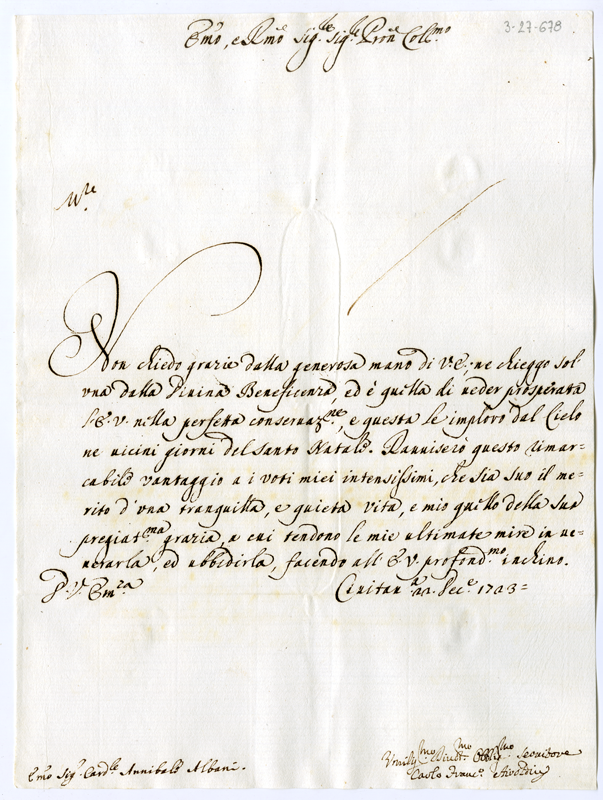 3-27-678
Emo, e Rmo Sig.re Sig.re Pron Coll.mo
Non chiedo grazie dalla generosa mano di V.E.; ne chieggo sol
vna dalla Diuina Beneficenza, ed è quella di ueder prosperata
l'E.V. nella perfetta conseruaz.ne, e questa le imploro dal Cielo
ne uicini giorni del Santo Natale. Rauuiserò questo rimar-
cabile vantaggio a i voti miei intensissimi, che sia suo il me-
rito d'vna tranquilla, e quieta vita, e mio quello della sua
pregiat.ma grazia, a cui tendono le mie ultimate mire in ue-
nerarla, ed ubbidirla, facendo all'E.V. profond.mo inchino.
D. V. Em.za
Ciuitan.a 22. Dec.e 1723=
Vmilis.mo Diuot.mo Obblig.mo Seruitore
Emo Sig.r Card.le Annibale Albani.
Carlo Franc.o